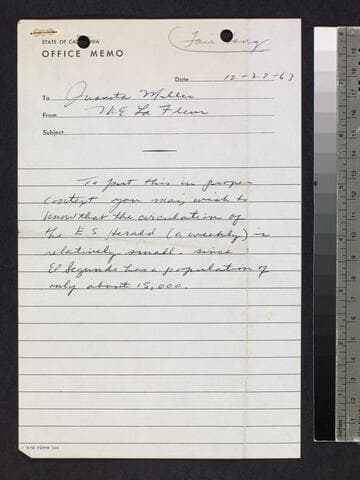 Fair Hsng
STATE OF CALIFORNIA
OFFICE MEMO
Date 12-27-63
To Juanita Miller
From M E La Fleur
Subject
To put this in proper
context you may wish to
know that the circulation of
the E S Herald (a weekly) is
relatively small - since
El Segundo has a population of
only about 15,000.
STD FORM 100